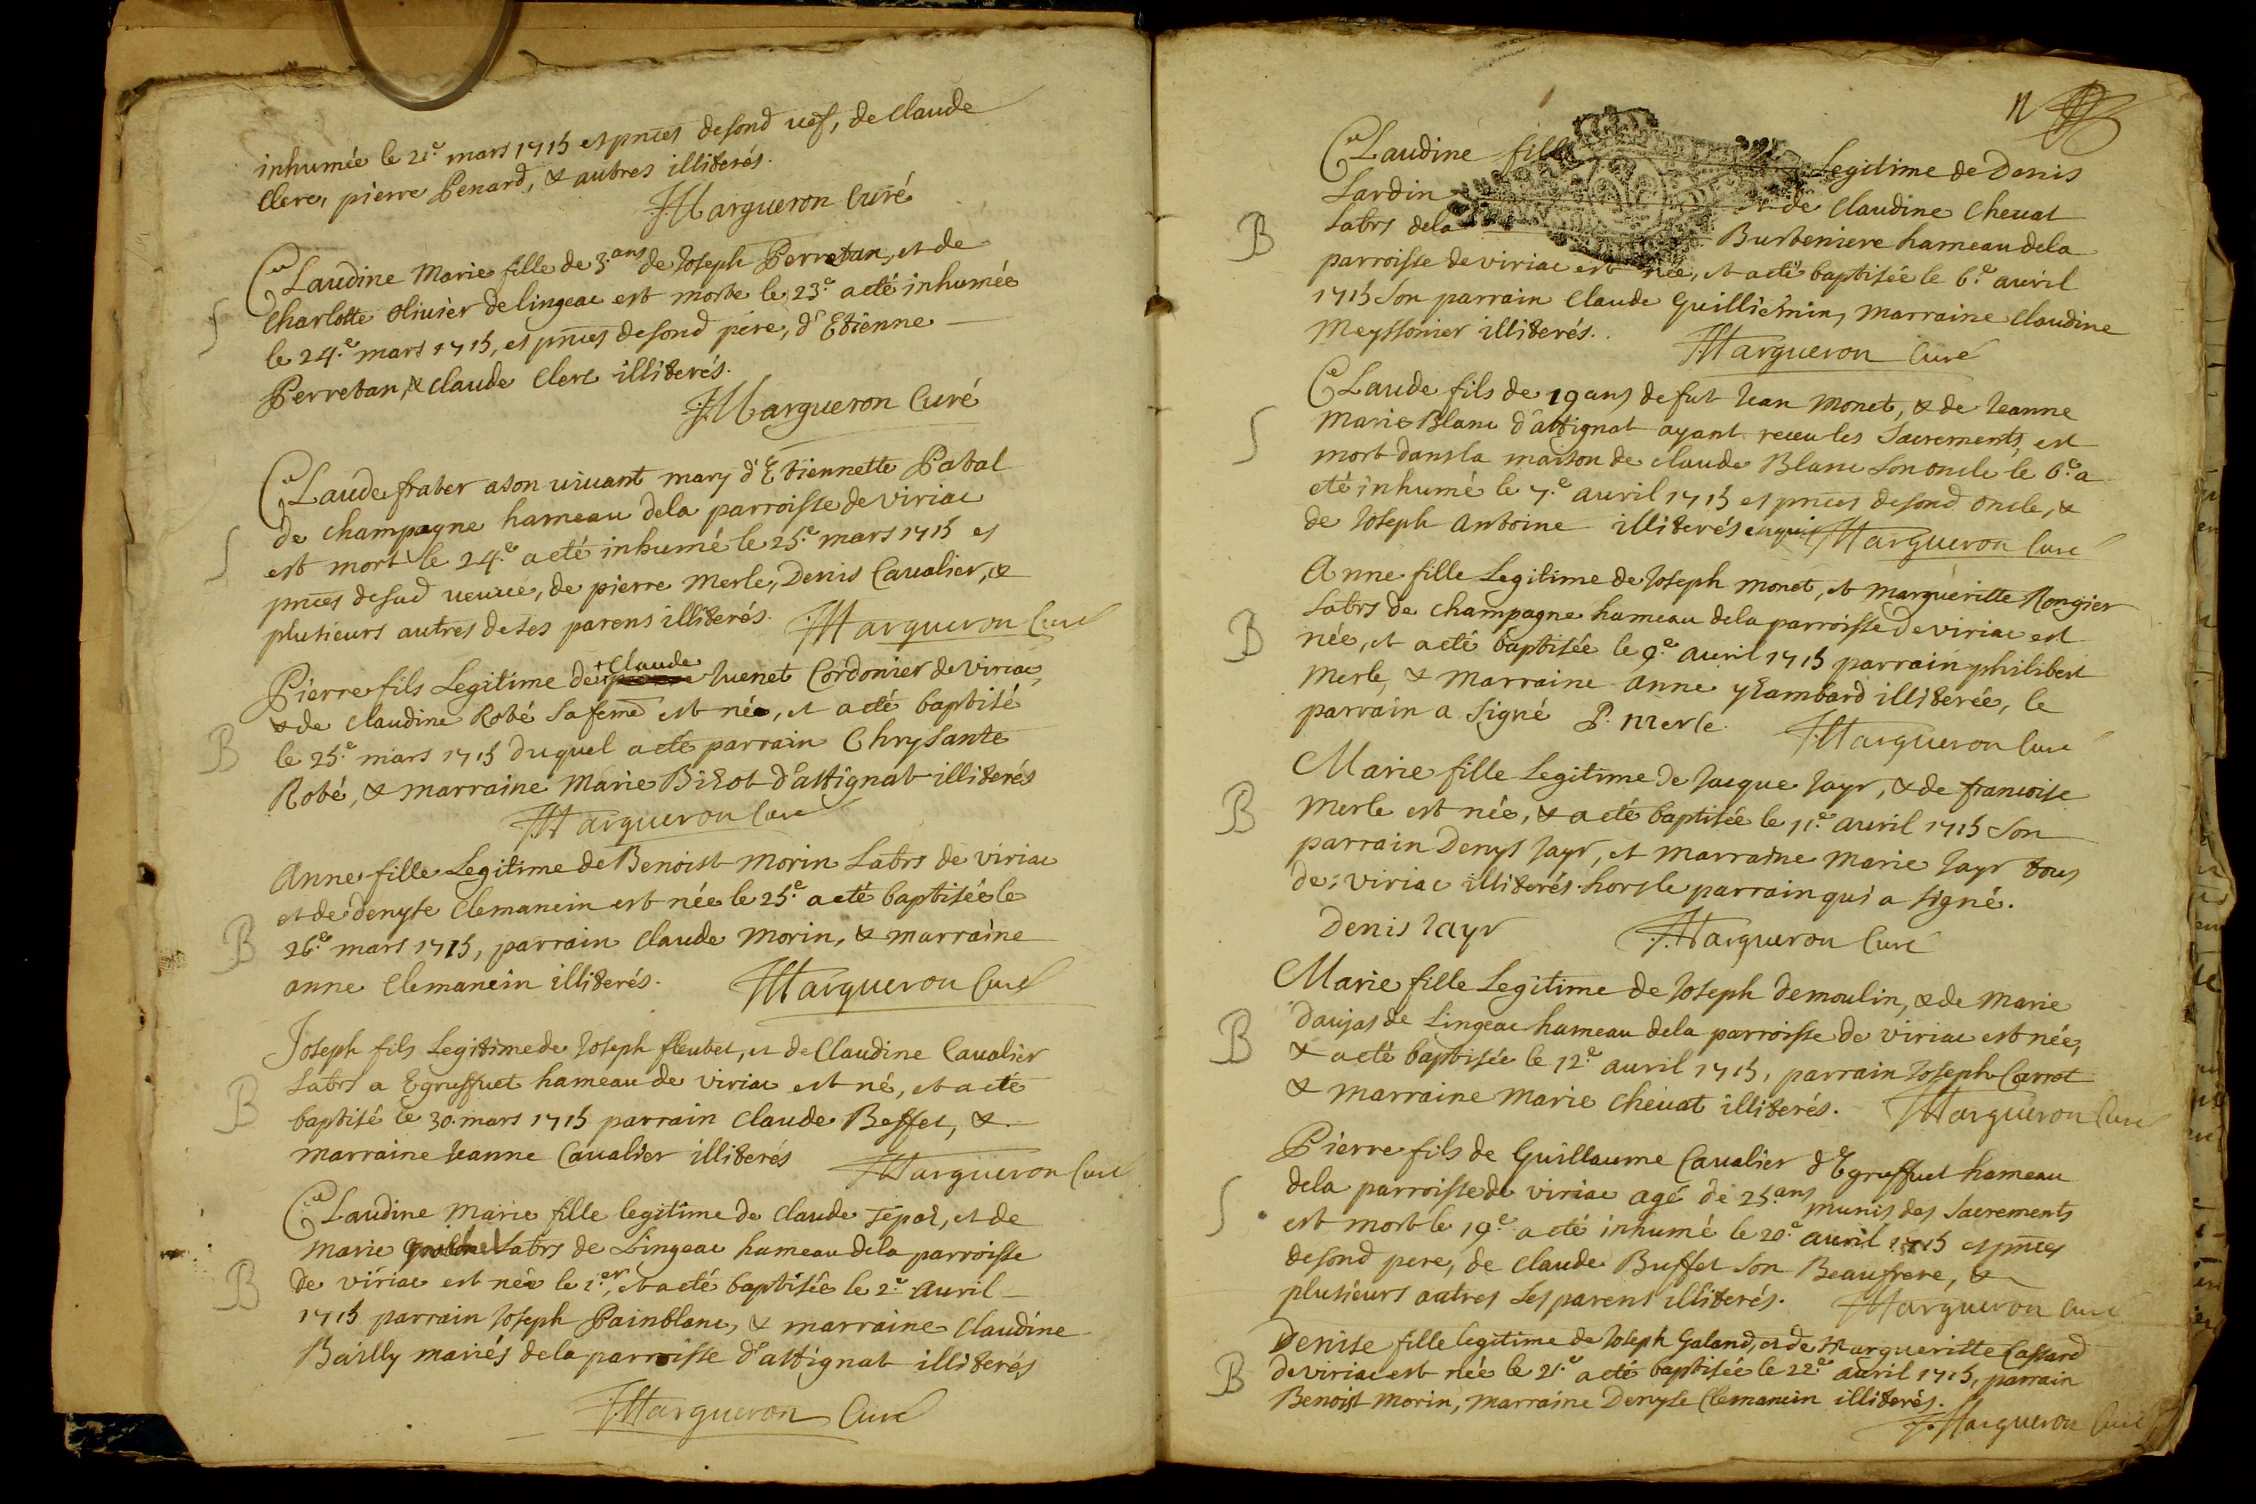 inhumée le 21e mars 1715 es pnces desond uef, de Claude
Clerc, pierre Penard, & autres illiterés.
Margueron Curé
S
Claudine Marie fille de 3. ans de Joseph Perretan, et de
Charlotte Oliuier de lingeac est morte le 23e a eté inhumée
le 24e mars 1715, es pnces desond pere, d'Etienne
Perretan, & Claude Clerc illiterés.
Margueron Curé
S
Claude frater a son uiuant mary d'Etiennette Patal
de Champagne hameau dela parroisse de viriac
est mort le 24e a eté inhumé le 25e mars 1715 es
pnces desad veuue, de pierre Merle, Denis Caualier, &
plusieurs autres de ses parens illiterés.
Margueron Curé
B
Pierre fils Legitime de + Claude Juenet Cordonier de Viriac,
& de Claudine Robé sa feme est né, et a eté baptisé
le 25e mars 1715 duquel a eté parrain Chrysante
Robé, & marraine Marie Bizot d'attignat illiterés
Margueron Curé
B
Anne fille Legitime de Benoist Morin Labrs de viriac
et de denyse Clemancin est née le 25e a eté baptisée le
26e mars 1715, parrain Claude Morin, & marraine
anne Clemancin illiterés.
Margueron Curé
B
Joseph fils Legitime de Joseph fleutet, et de Claudine Caualier
Labrs a Egreffuet hameau de viriac est né, et a eté
baptisé le 30. mars 1715 parrain Claude Beffet, &
marraine Jeanne Caualier illiterés
Margueron Curé
B
Claudine Marie fille legitime de Claude
et de
Marie Labrs de Lingeac hameau dela parroisse
de viriac est née le 1.er, et a eté baptisée le 2e auril
1715 parrain Joseph Painblanc, & marraine Claudine
Bailly mariés dela parroisse d'attignat illiterés
Margueron Curé
11
B
Claudine fille Legitime de Denis
Lardin et de Claudine Cheuat
Labrs dela Burteniere hameau dela
parroisse de viriac est née, et a eté baptisée le 6e auril
1715 son parrain Claude Guilliemin, marraine Claudine
Meyssonier illiterés.
Margueron Curé
S
Claude fils de 19 ans de fut Jean Monet, & de Jeanne
Marie Blanc d'attignat ayant receu les Sacrements, est
mort dans la maison de Claude Blanc son oncle le 6e a
eté inhumé le 7e auril 1715 es pnces desond oncle, &
de Joseph Antoine illiterés
Margueron Curé
B
Anne fille Legitime de Joseph Monet, et Margueritte Rongier
Labrs de Champagne hameau dela parroisse de viriac est
née, et a eté baptisée le 9e auril 1715 parrain philibert
Merle, & Marraine anne illiterée, le
parrain a signé P. Merle.
Margueron Curé
B
Marie fille Legitime de Jacque Jayr, & de francoise
Merle est née, & a eté baptisée le 11e auril 1715 son
parrain Denys Jayr, et marraine Marie Jayr tous
de viriac illiterés hors le parrain qui a signé.
Denis Jayr
Margueron Curé
B
Marie fille Legitime de Joseph Demoulin, & de Marie
Daujas de Lingeac hameau dela parroisse de viriac est née,
& a eté baptisée le 12e auril 1715, parrain Joseph Carrot
& Marraine Marie Cheuat illiterés.
Margueron Curé
S
Pierre fils de Guillaume Caualier d'Egreffuet hameau
dela parroisse de viriac agé de 25. ans munis des Sacrements
est mort le 19e a eté inhumé le 20e auril 1715 es pnces
desond pere, de Claude Buffet son Beaufrere, &
plusieurs autres ses parens illiterés.
Margueron Curé
B
Denise fille legitime de Joseph Galand, et de Margueritte Cassard
de viriac est née le 21e a eté baptisée le 22e auril 1715, parrain
Benoist Morin, marraine Denyse Clemancin illiterés.
Margueron Curé